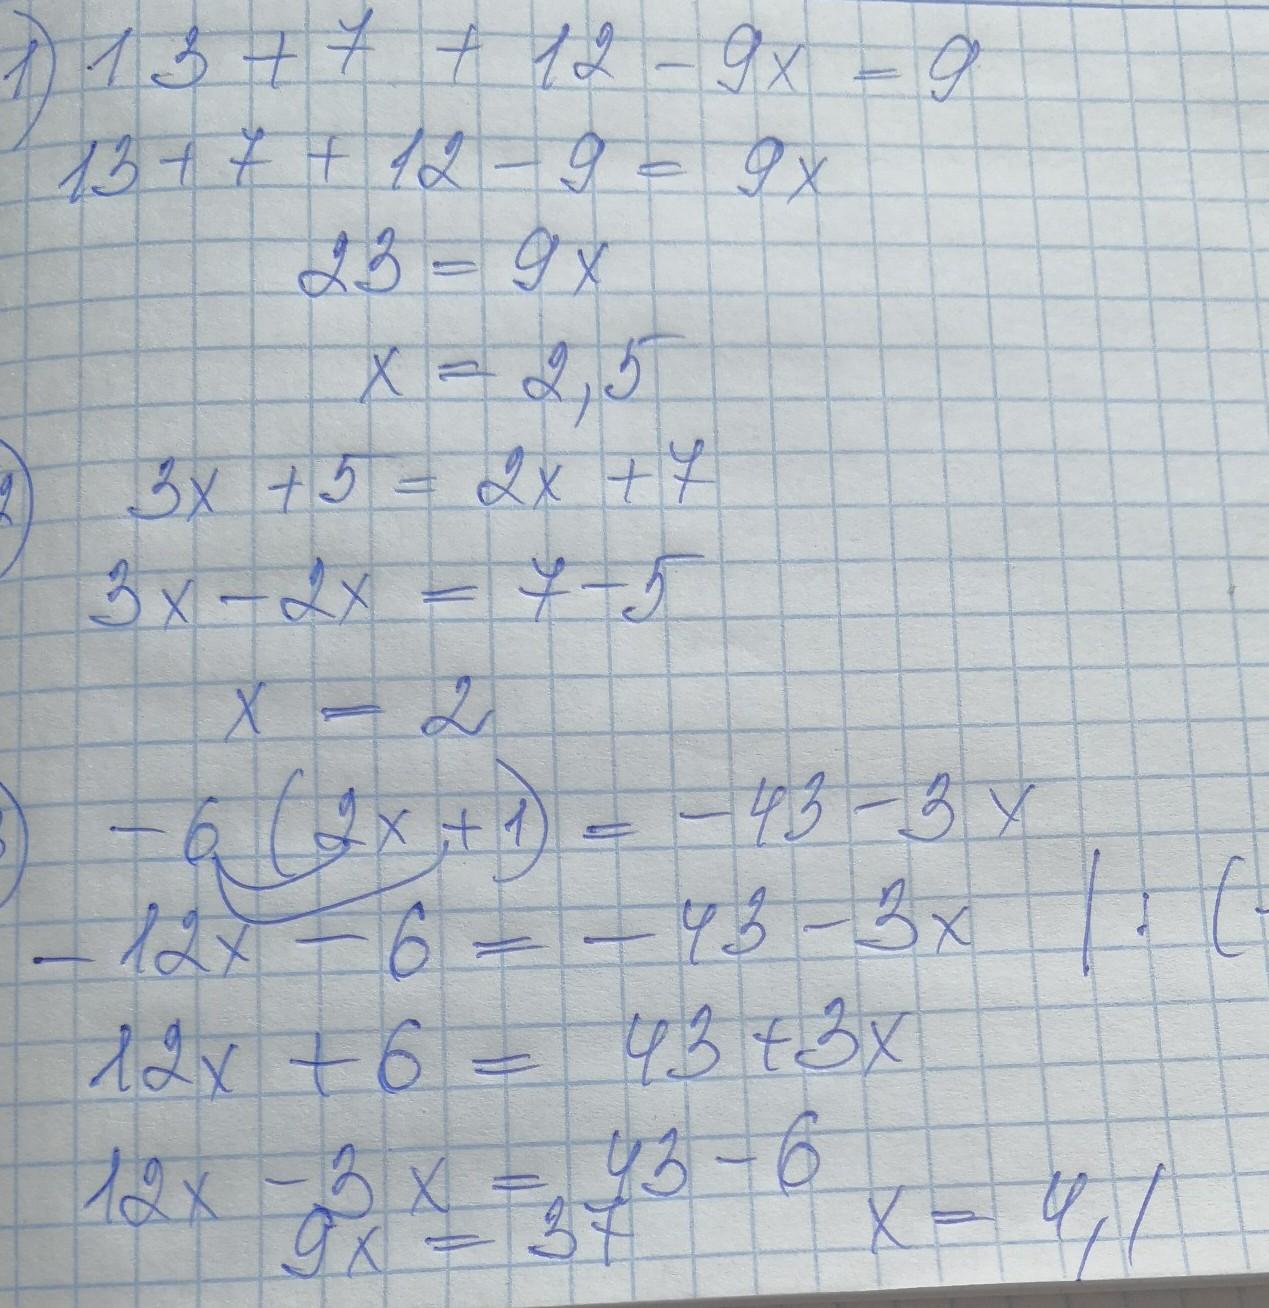 1) 13 + 7 + 12 - 9x = 9
13 + 7 + 12 - 9 = 9x
23 = 9x
x = 2,5
2) 3x + 5 = 2x + 7
3x - 2x = 7 - 5
x = 2
3) - 6 (2x + 1) = - 43 - 3x
- 12x - 6 = - 43 - 3x | : (-
12x + 6 = 43 + 3x
12x - 3x = 43 - 6
9x = 37 x = 4,1